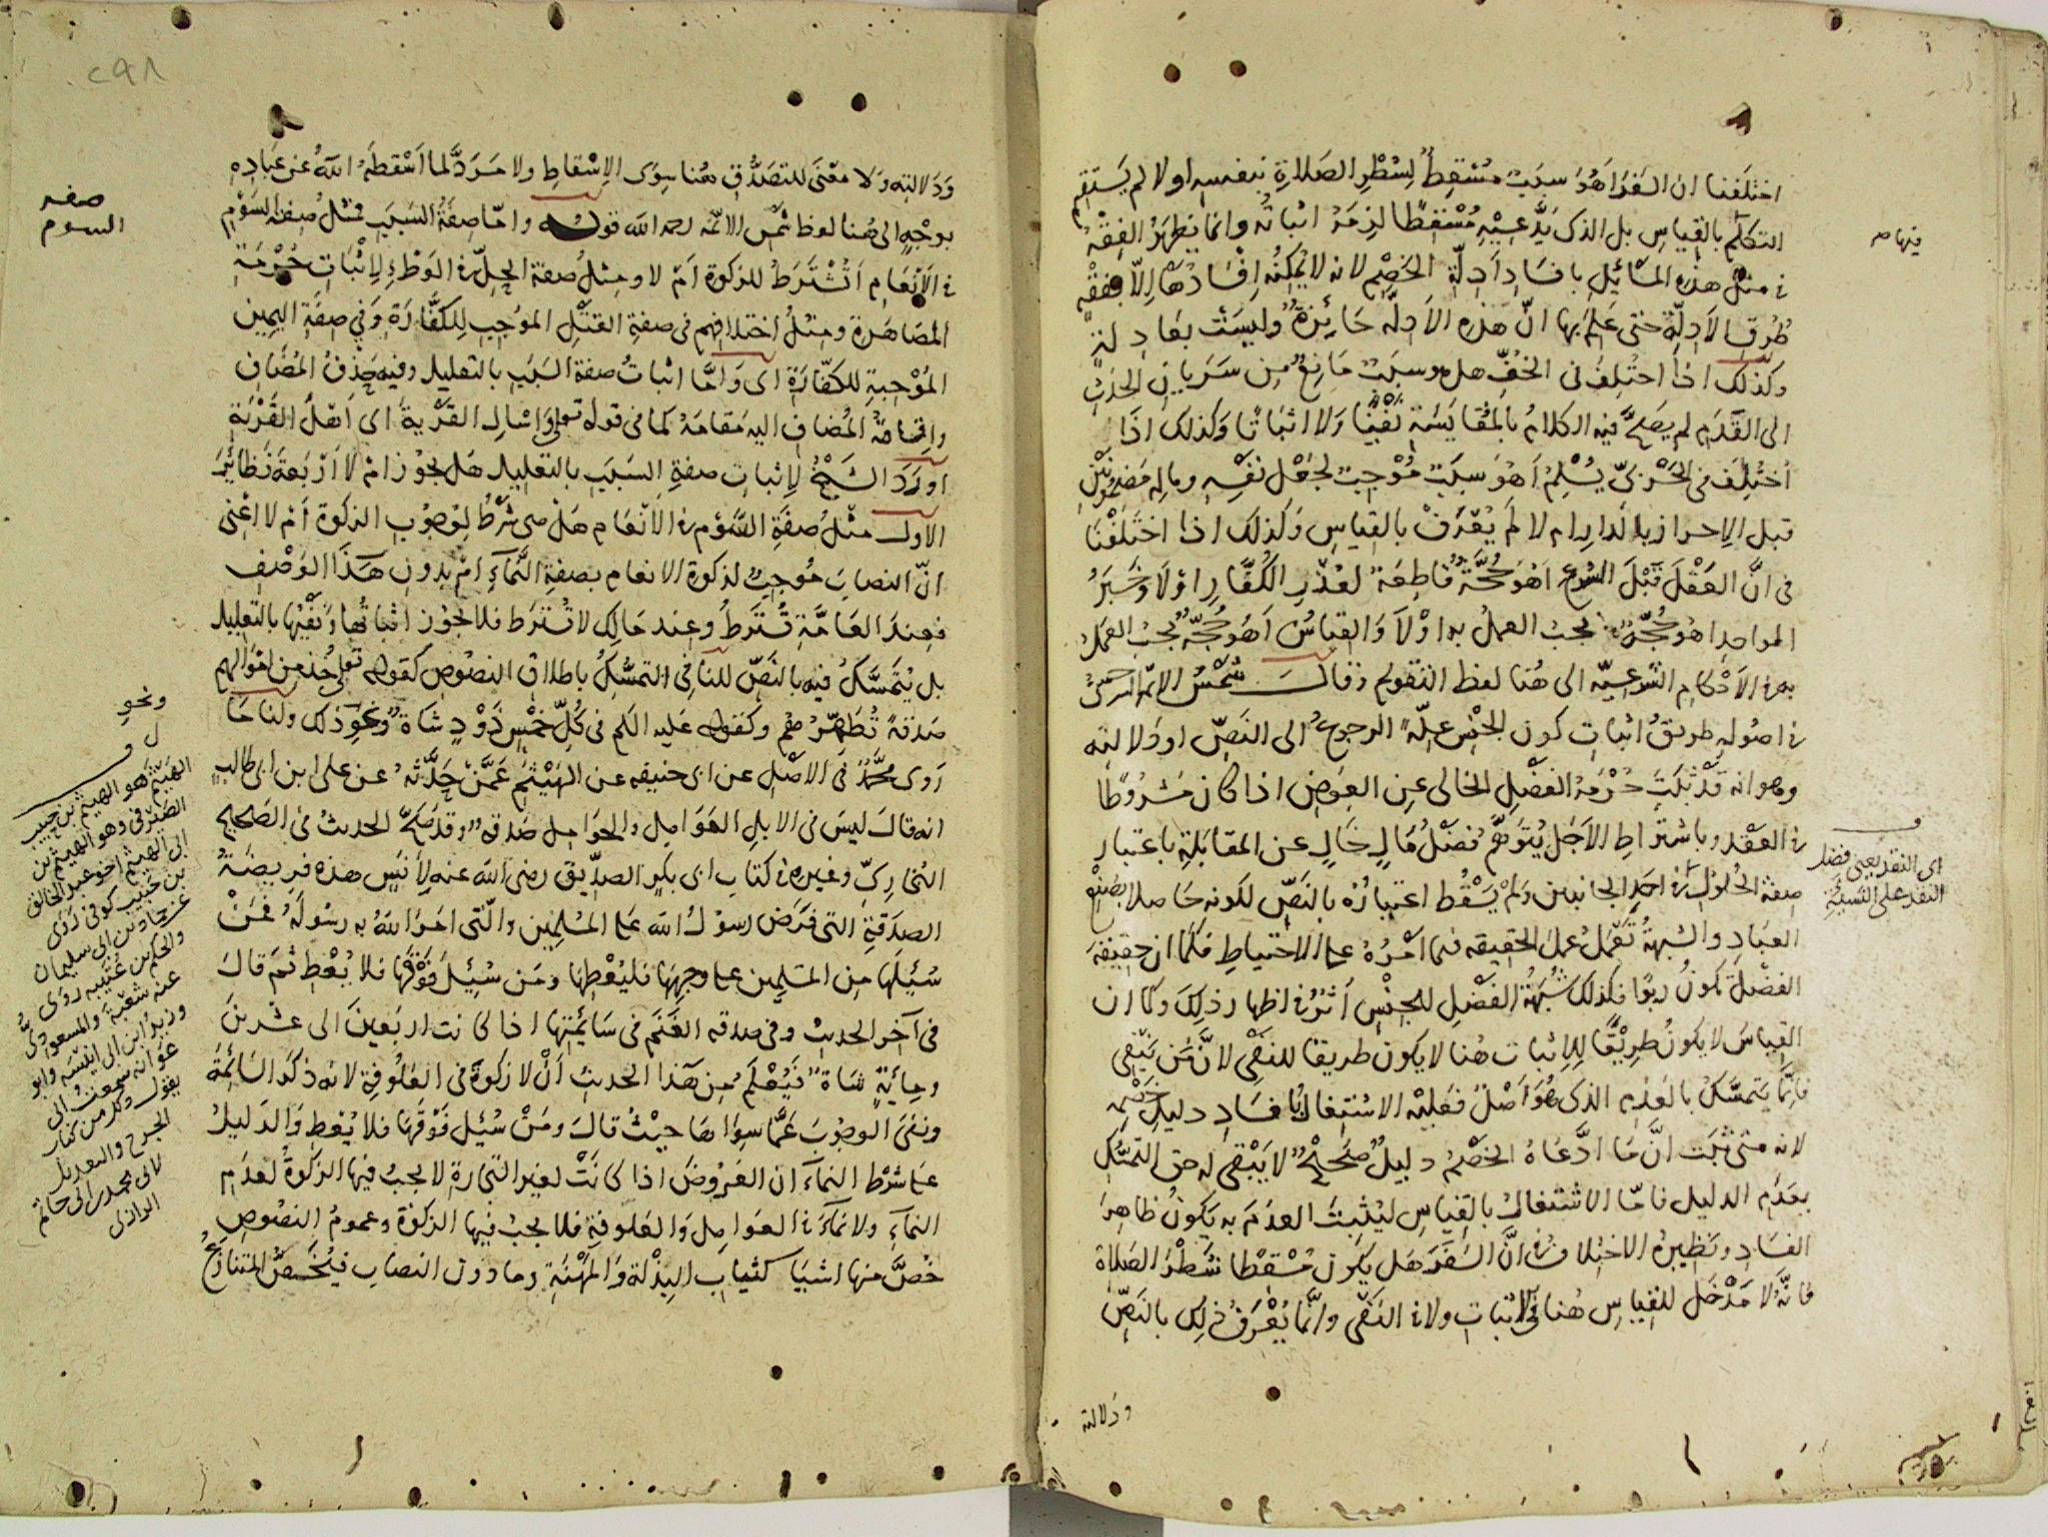 اختلفنا ان السفر اهو سبب مُسْقِطٌ لِشطرِ الصلاةِ بنفسِهِ او لا لم يستقم
التكلم بالقياسِ بل الذى يَدَّعيْهِ مُسْقِطًا لزمَهُ اثباتُه وانما يظهرُ الفقهُ
فى مثل هذه المسائلِ بافسَادِ اَدِلّةِ الخَصْمِ لانه لا يُمكِنُهُ اِفْسَادُهَا اِلّا بفقْهِ
طُرقِ الاَدِلّةِ حتى عَلِمَ بها انّ هَذِه الادلّه جَائِزَةٌ وليسَتْ بعَادِلةٍ
وكذلك اذا اختُلِفَ فى الخُفِّ هل هو سببٌ مَانِعٌ مِن سَرَيانِ الحدَثِ
الى القَدَمِ لم يصحَّ فيه الكلامُ بالمُقَايَسَةِ نَفْيًا ولا اثباتًا وكذلك اذا
اختُلِفَ فى الحَرْبىّ يُسْلِمُ اَهُوَ سببٌ مُوْجِبٌ لجَعْل نفْسِهِ ومالِهِ مَضمُونَيْنِ
قبل الاِحرازِ بالدارِ ام لا لم يُعْرَفْ بالقياسِ وَكَذلك اذا اختَلَفْنَا
فى انَّ العَقْلَ قبْلَ الشرع اَهُوَ حُجَّةٌ قاطِعَةٌ لعُذْرِ الكُفَّارِ اوْ لَا وخبَرُ
الواحدِ اهُو حُجَّةٌ يجبُ العملُ به اوْ لَا وَالقياسُ اَهُوَ حُجَّةٌ يجبُ العملُ
به فى الاَحْكامِ الشرعيّه الى هُنا لفظ التقويم وقالَ شمْسُ الائمّة السرخسىّ
فى اصُولِهِ طريقُ اثباتِ كونِ الجنْسِ عِلّةً الرجوعُ الى النَصّ اودَلالتِه
وهو انه قدْ ثبَتَ حُرْمَةُ الفَضْلِ الخالى عنِ العِوَضِ اذا كان مَشرُوطًا
فى العَقْدِ وباشتراطِ الاَجَلِ يُتَوَهَّمُ فَضْلُ مَالٍ خَالٍ عن المقابلةِ باعتبارِ
صِفةِ الحُلولِ فى احدِ الجانبين ولمْ يَسْقُط اعتبارُهُ بالنَصِّ لكونهِ حَاصلا بصُنْعِ
العبَادِ والشبهةُ تَعْمَلُ عملَ الحقيقه فيما امْرُهُ على الاحتياطِ فكما ان حقيقةَ
الفضْلِ تكونُ ربوًا فكذلك شُبْهَةُ الفَضْلِ للجنْسِ أثرٌ فى اظهارِ ذلِكَ وكما ان
القياسَ لا يكونُ طريْقًا لِلاِثباتِ هُنا لا يكون طريقا للنَفْى لانَّ مَن يَنْفِى
فانّما يَتمسَّكُ بالعَدَمِ الذى هُوَ اَصْلٌ فَعَليْه الاشتِغالُ بافسَادِ دليلِ خَصْمِه
لانه متى ثَبَت انَّ مَا ادَّعَاهُ الخصْمُ دليلٌ صَحِيْحٌ لا يَبْقى له حق التمسُّكِ
بعَدَمِ الدليل فامّا الاشتغالُ بالقياسِ ليُثبتَ العدَمَ به يَكونُ ظاهِرَ
الفسَادِ ونظيرُه الاختلافُ فى انَّ السَفَرَ هَل يكون مُسْقِطا شَطْرَ الصلاة
فانّه لا مَدْخَل للقياسِ هُنا فى الاثباتِ ولا فى النَفْى وانّما يُعْرَفُ ذلك بالنَصّ
ودلالته
اى النقد يعنى فضل
النقد على النسيئة
٢٩٨
وَدَلالتِه وَلا معْنَى للتصَدُّقِ هُنا سِوَى الاِسْقاطِ ولا مَرَدَّ لما اَسْقطَهُ اللهُ عن عبَادِه
بوجْهٍ الى هُنا لفظ شمْسِ الائمّه رحمه الله قوله وامّا صفَةُ السَبَبِ فمثلُ صفة السَوْمِ
فى الاَنْعَامِ اَتُشْتَرَطُ للزكوة اَمْ لا ومِثلُ صفة الحِلّ فى الوَطْءِ لاِثْبَاتِ حُرْمَةِ
المصَاهَرة ومثلُ اختلافِهم فى صفةِ القتْلِ الموُجِبِ لِلكَفّارَة وَفِي صِفَةِ اليمين
المُوْجِبةِ للكفّارَةِ اى وَامَّا اثباتُ صفة السَبَبِ بالتعليل وفيه حَذْفُ المُضَافِ
واِقَامَةُ المُضَافِ اليه مَقامَهُ كما فى قوله تعلى وَاسْالِ القَرْيةَ اى اَهْلَ القَرْيَةِ
اورَدَ الشيْخُ لِاثباتِ صفةِ السَبَبِ بالتعليل هَل يجوْز امْ لا اَرْبعَةَ نَظائِرَ
الاول مثْلُ صفَةِ السَّوْم فى الاَنْعَام هَلْ هى شَرْطٌ لِوُجُوْبِ الزكوة اَمْ لا اعْنى
انّ النصابَ مُوجِبٌ لزكوة الانعام بصفةِ النَّمَآءِ امْ بدون هَذَا الوَصْفِ
فعِنْدَ العَامَّةِ تُشترَطُ وعند مَالِك لا تُشترَط فلا يجوْز اثباتُها ونَفْيُها بالتعليل
بل يُتَمسَّكُ فيه بالنَصِّ للنافى التمسُّكُ باطلاقِ النصُوصِ كقوله تعلى خُذ من اموَالهم
صَدَقةً تُطَهّرُهم وكقوله عليه السلم فى كُلِّ خَمْسِ ذَوْدٍ شَاة ونحوِ ذلك ولنا مَا
رَوى محمّدٌ فى الاصْلِ عن ابى حنيفه عن الهَيْثَم عَمَّنْ حدَّثهُ عن على ابن ابى طالب
انه قالَ ليسَ فى الابلِ العَوَامِل والحوَامِل صَدقةٌ وقد صَحَّ الحديثُ فى الصَحيح
البُخارىّ وغيره فى كتابِ ابى بكرٍ الصدّيق رضى الله عنه لِاَنَسٍ هذه فريضَةُ
الصدَقةِ التى فرَضَ رسوْلُ الله على المسْلِمين والّتى امَرَ اللهُ به رسُولَهُ فمَنْ
سُئِلَها مِنَ المسْلِمين على وجهِهَا فليُعْطِهَا ومَن سُئِلَ فَوْقَها فلا يُعْطِ ثمّ قالَ
فى آخر الحديثِ وفى صدقه الغَنَم فى سَائِمَتِها اذا كانت اربعين الى عشْرِينَ
ومِائَةٍ شاة فيُعْلَمُ مِن هَذا الحديث اَنْ لا زكوة فى العَلُوفِةِ لانه ذكرَ السَائِمَةَ
ونفى الوجُوبَ عَمّا سِوَاهَا حيْثُ قالَ ومَنْ سُئِل فَوْقَهَا فلا يُعْطِ وَالدَليلُ
على شَرْطِ النمآءِ ان العُرُوْضَ اذا كانَتْ لغيرِ التجارةِ لا يجبُ فيها الزكوةُ لعدَمِ
النمآءِ ولا نمآءَ فى العوَامِل وَالعَلوفةِ فلا يجبُ فيها الزكوة وعمومُ النصُوصِ
خُصَّ منها اشيَا كثيَابِ البِذْلة وَالمِهْنَةِ وما دون النصابِ فيُخَصُّ المتنازَعُ
صفه
السوم
ونحو
الهيثم هو الهيثم بن حبيب
الصيرفى وهو الهيثم بن
ابى الهيثم اخو عبد الخالق
بن حبيب كوفى روى
عن حماد بن ابى سليمان
والحكم بن عتيبه روى
عنه شعبة والمسعودى
وزيد ابن ابى انيسه وابو
عوانه سمعت ابى
يقول ذكر من كتاب
الجرح والتعديل
لابى محمد بن ابى حاتم
الرازى